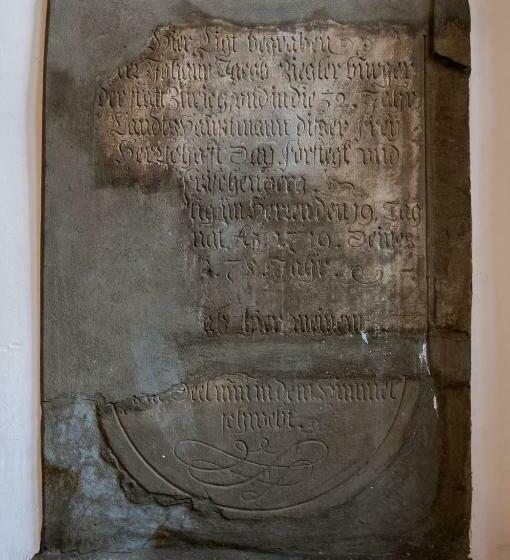 Hier Ligt begraben
Johann Jacob Ziegler burger
der statt Zürich, und in die 32. Jahr
Landts Haubtmann diser frey
Herrschafft Sax forstegk und
frischenberg
im Herren den 19. Tag
Ao 1719. Seines
Jahr.
hier
Seel nun in dem Himmel
schwebt.